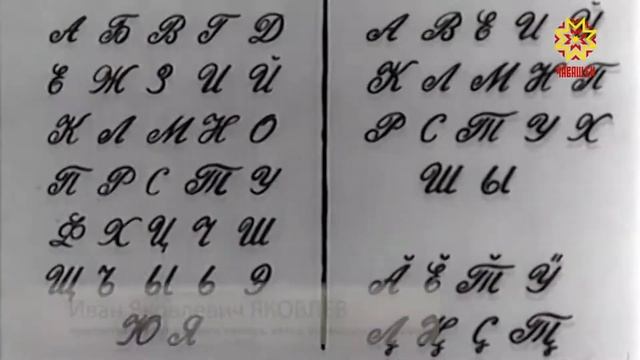 А Б В Г Д
Е Ж З И Й
К Л М Н О
П Р С Т У
Ф Х Ц Ч Ш
Щ Ъ Ы Ь Э
Ю Я
А В Е И Й
К Л М Н П
Р С Т У Х
Ш Ы
Ӑ Ӗ Т̌ Ӳ
Л̡ Н̡ Ҫ Т̡
Иван Яковлевич ЯКОВЛЕВ